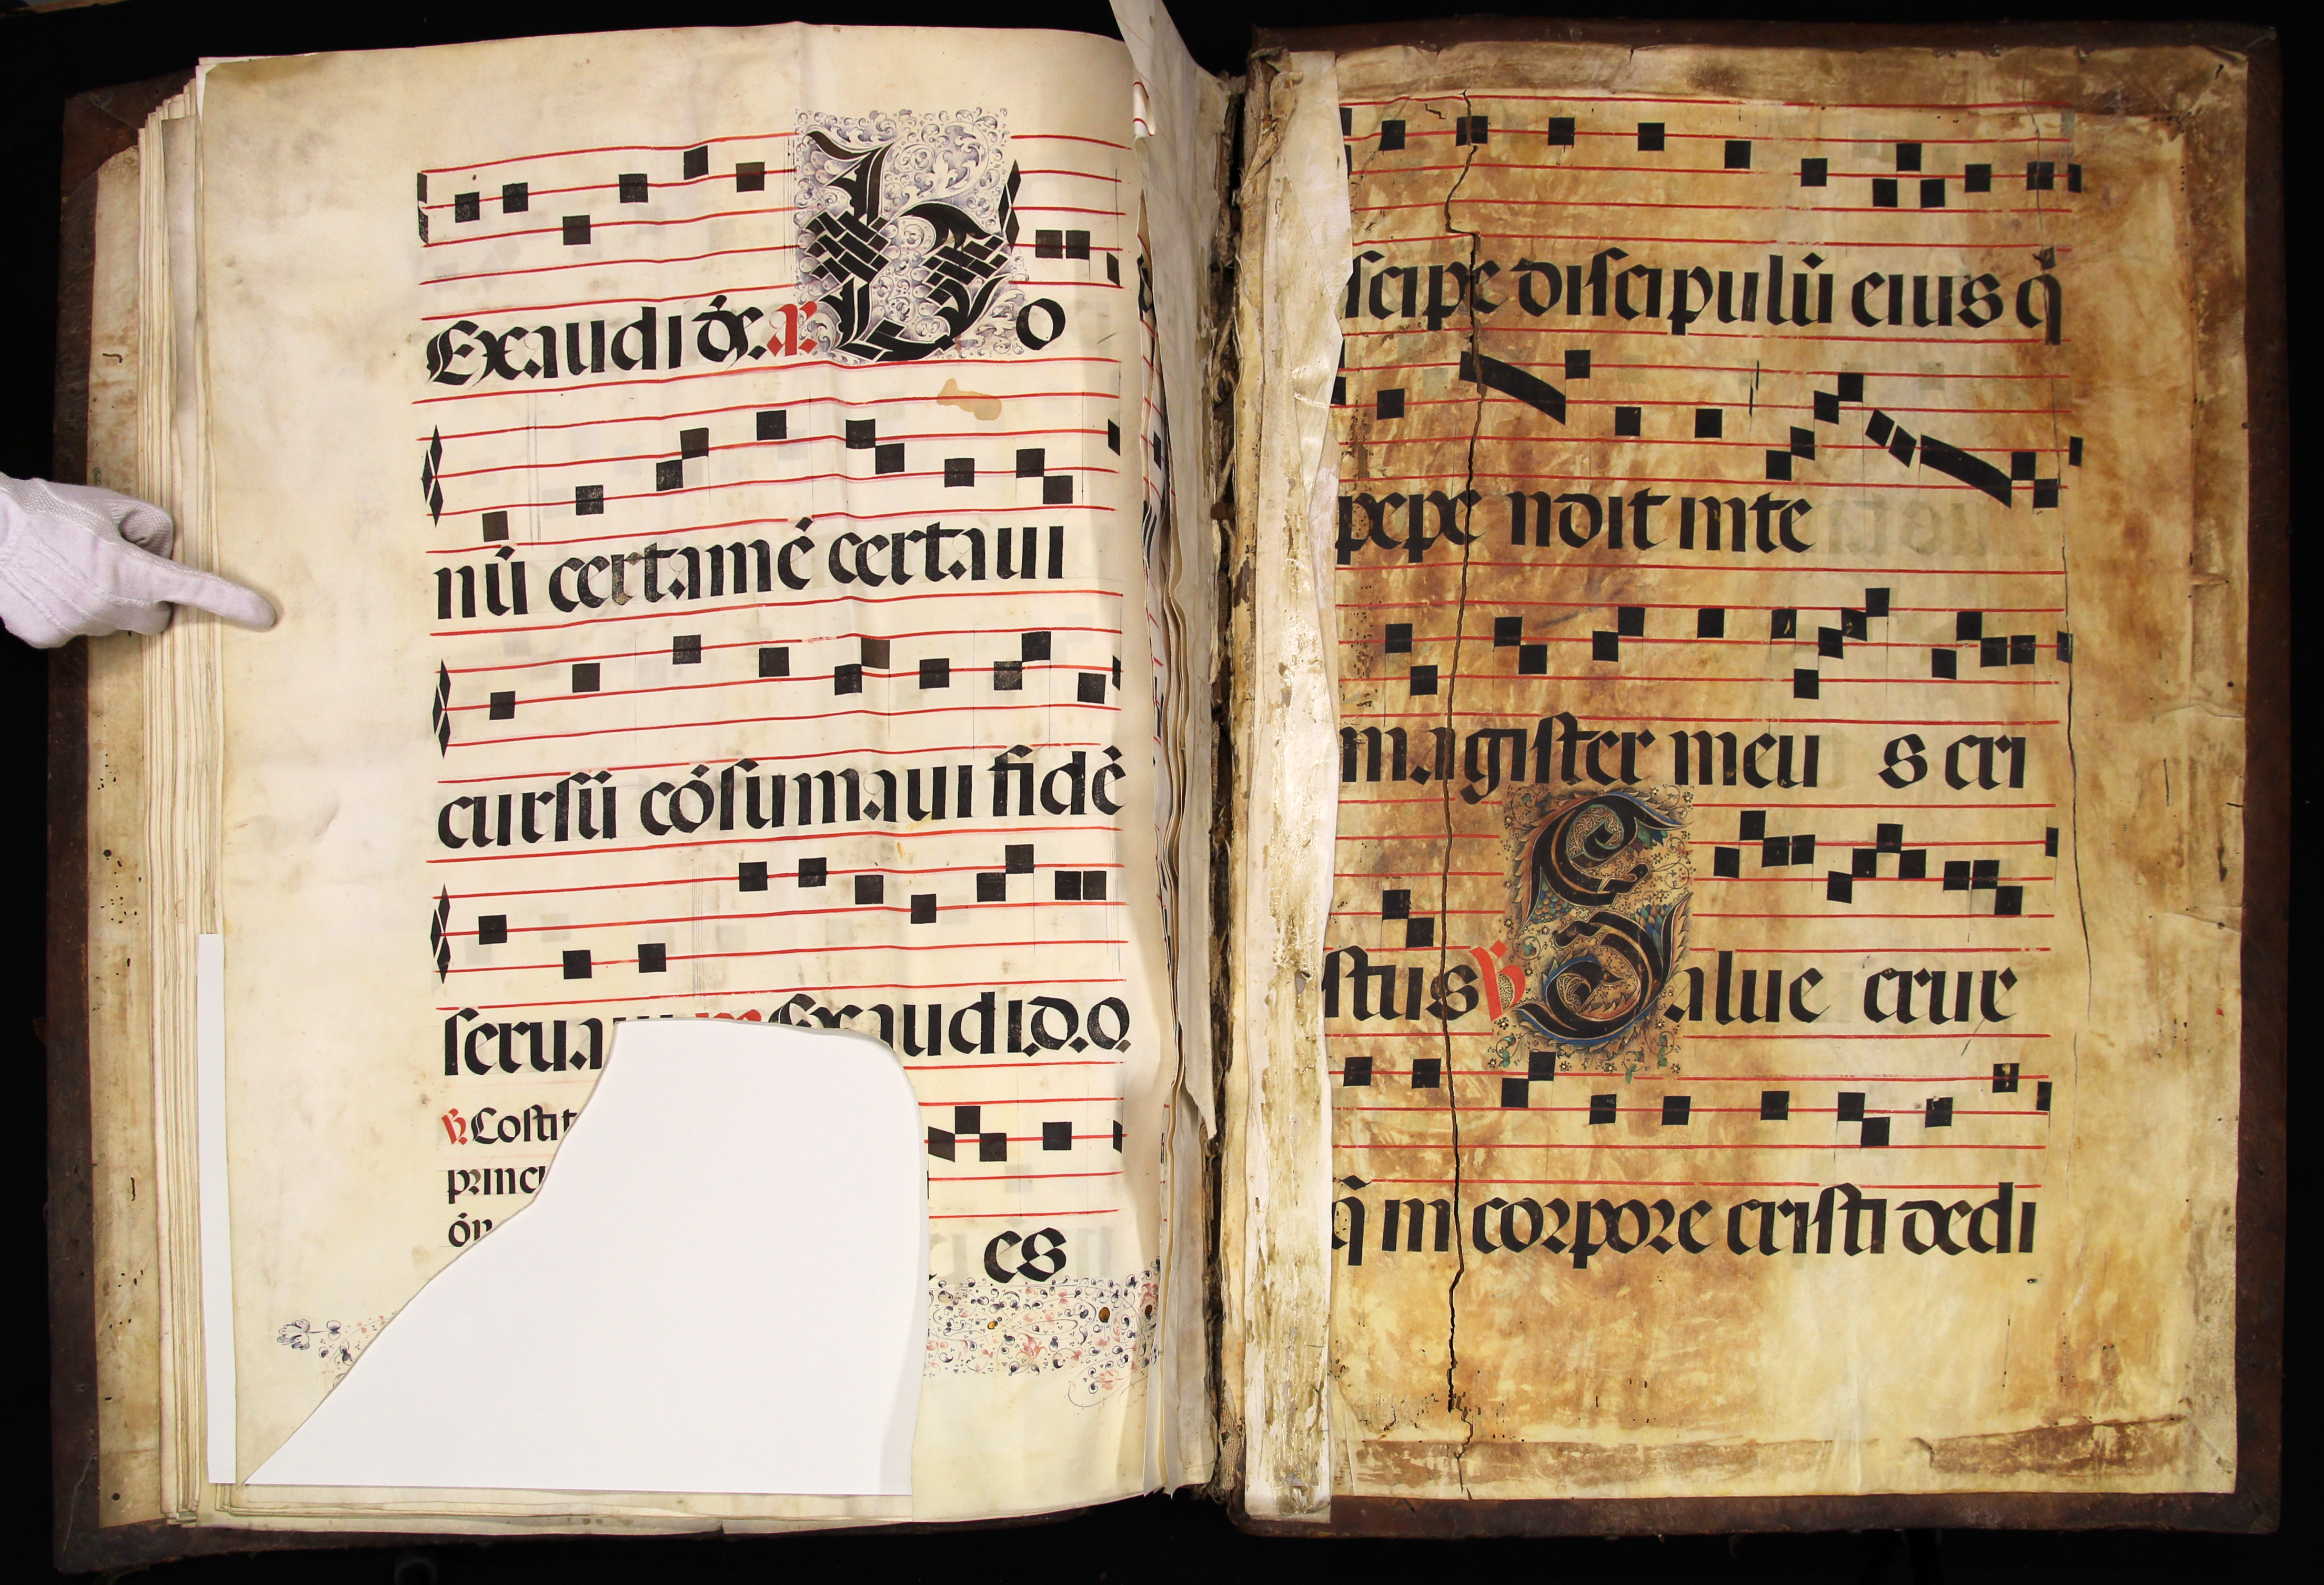 Exaudi de. a. Bo
nū certamē certaui
cursū cōsumaui fidē
serua Exaudi.D.O.
℣. Costit
princi
es
scipe discipulū eius q̄
pepe ndit inte
magister meu s cri
stus ℣ Salue crux
q̄ in corpore cristi dedi